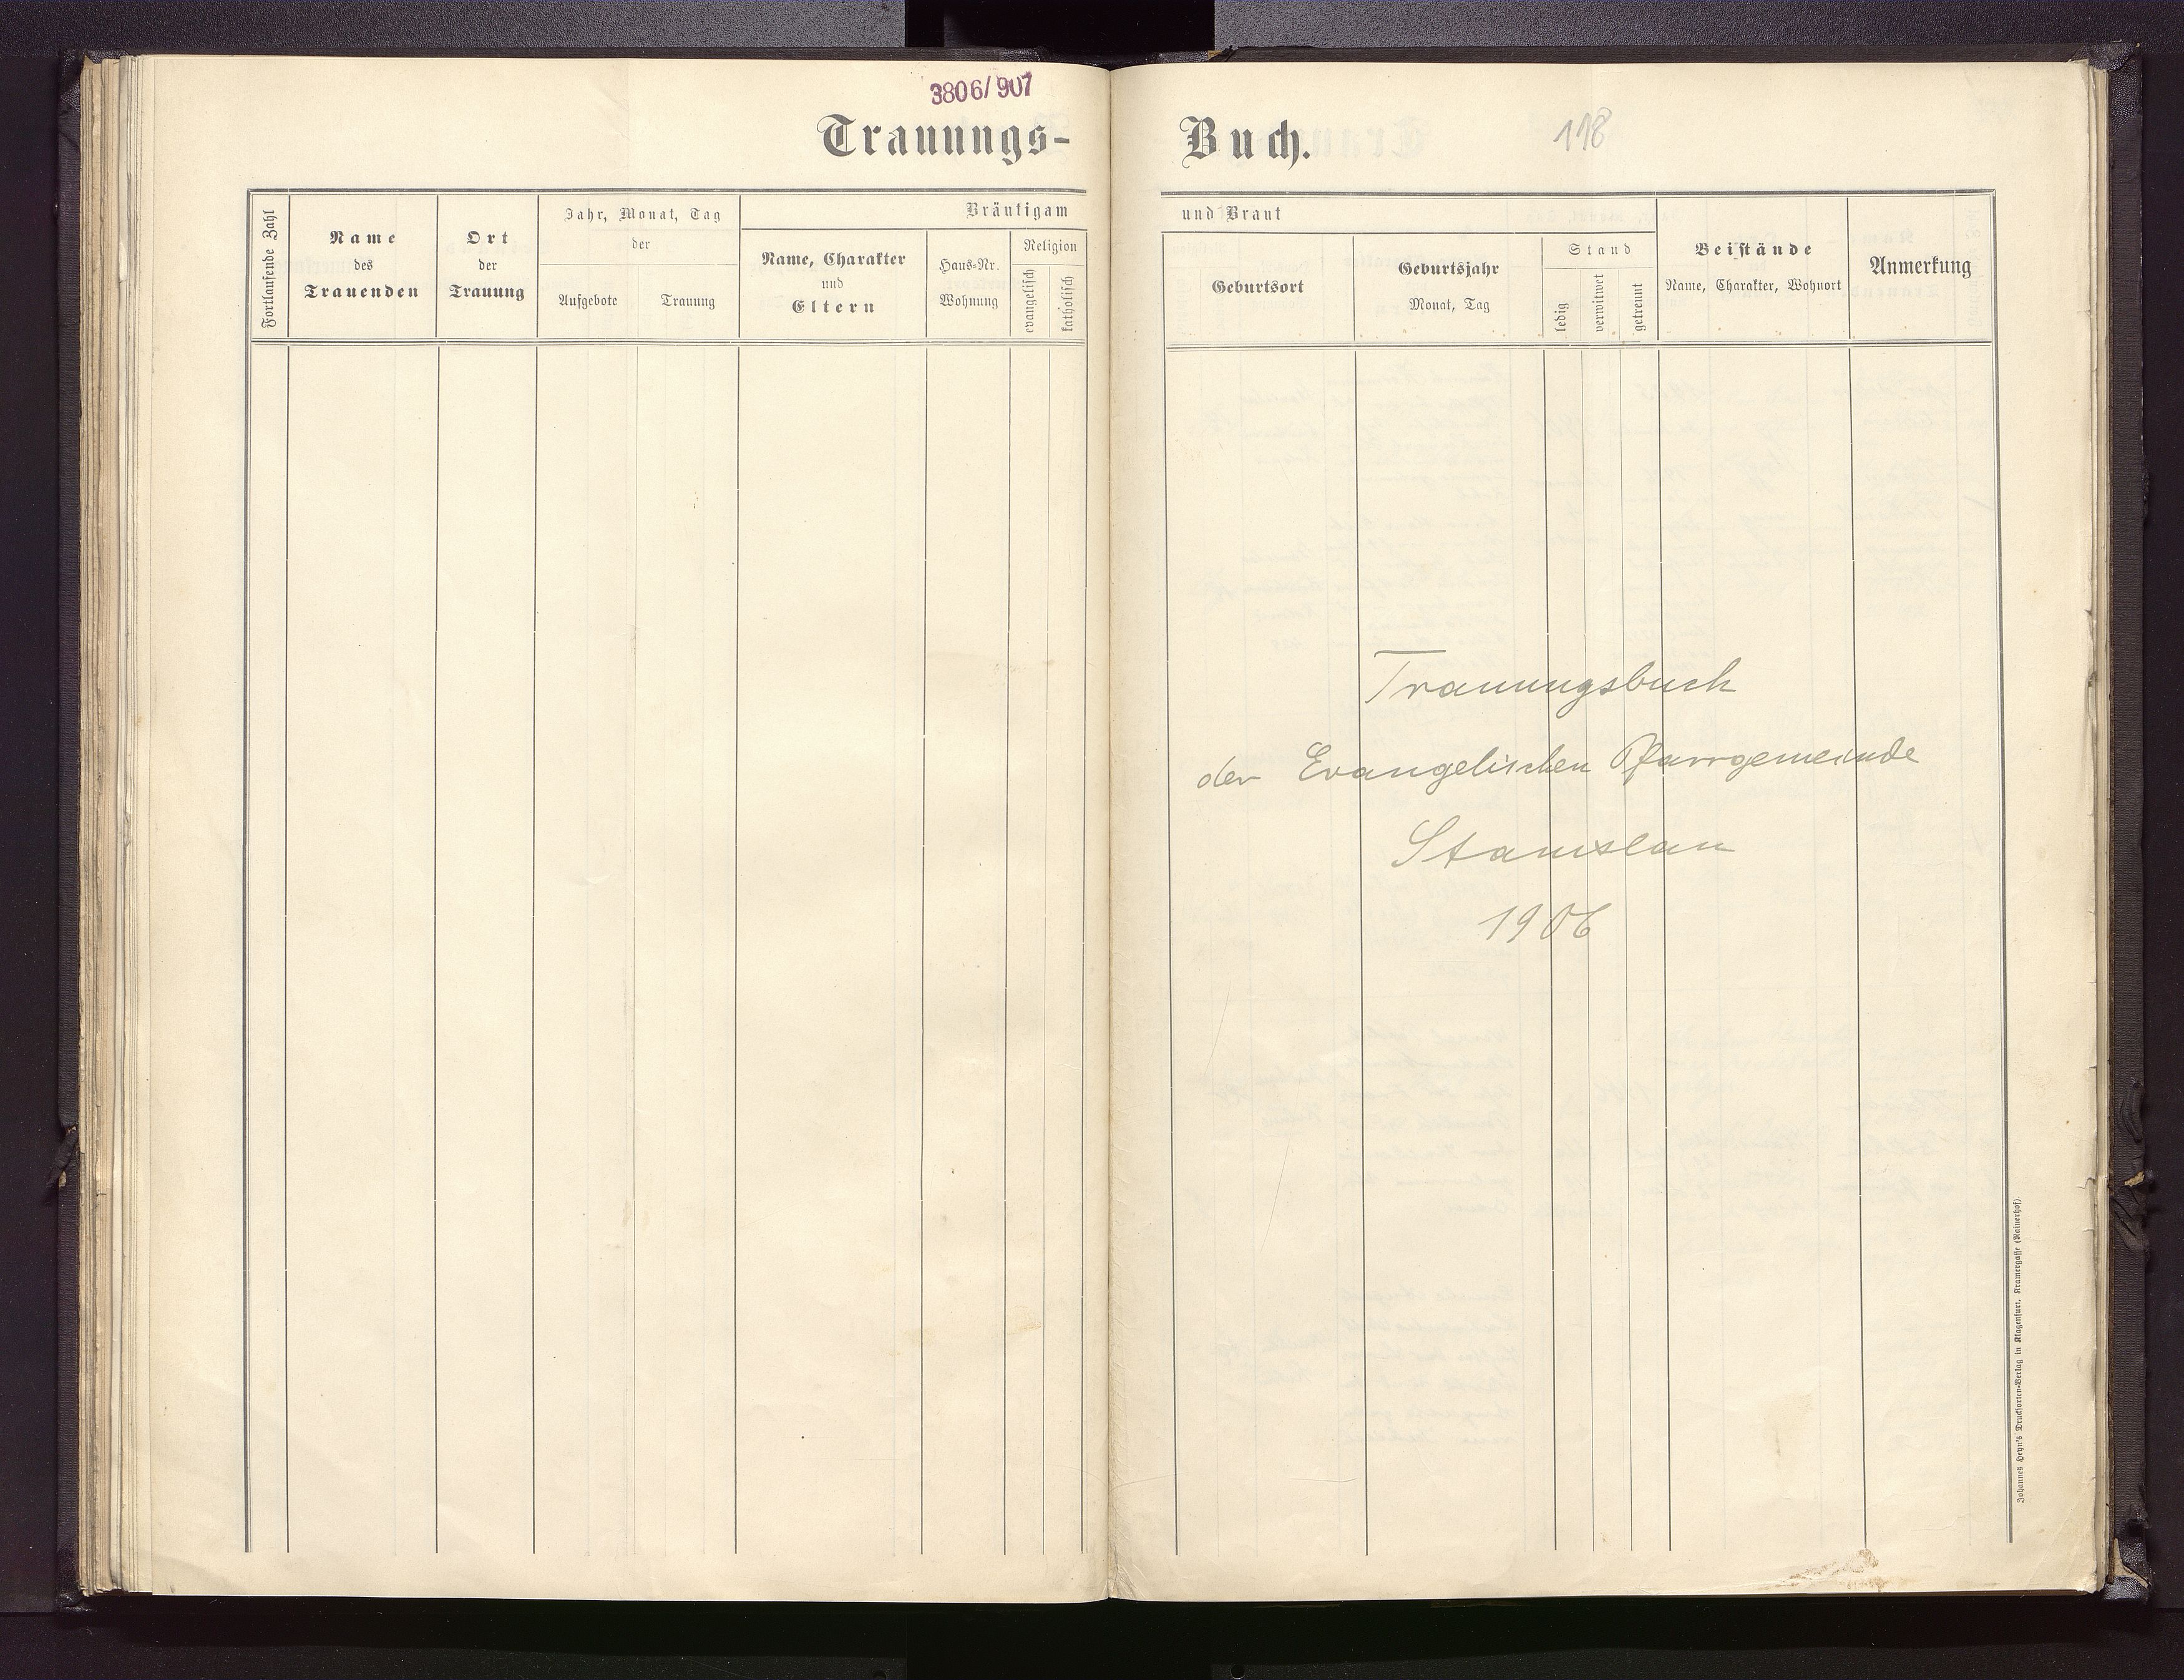 3806/907
Trauungs-
Buch.
118
Fortlaufende Zahl
Name
des
Trauenden
Ort
der
Trauung
Jahr, Monat, Tag
der
Aufgebote
Trauung
Bräutigam
Name, Charakter
und
Eltern
Haus-Nr.
Wohnung
Religion
evangelisch
katholisch
und Braut
Geburtsort
Geburtsjahr
Monat, Tag
Stand
ledig
verwitwet
getrennt
Beistände
Name, Charakter, Wohnort
Anmerkung
Trauungsbuch
der Evangelischen Pfarrgemeinde
Stanislau
1906
Johannes Heyn's Drucksorten-Verlag in Klagenfurt, Kramergasse (Rainerhof).